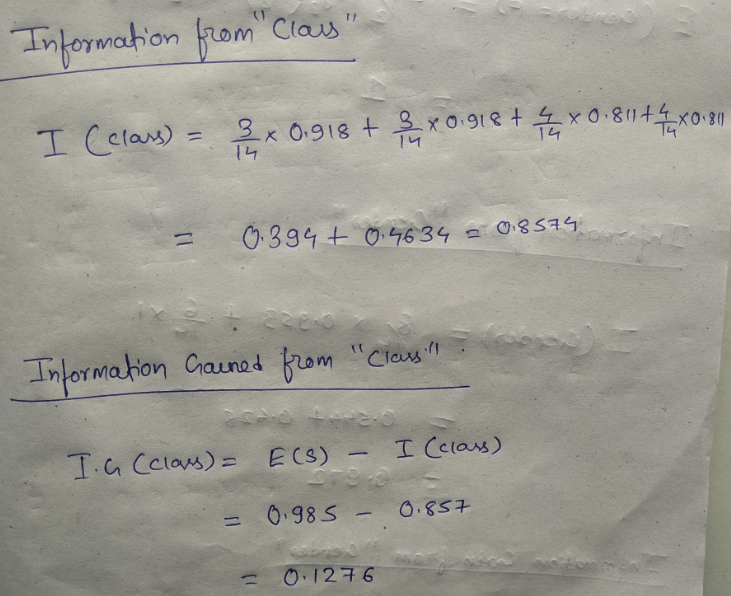 Information from "Class"
I (class) = 3/14 × 0.918 + 3/14 × 0.918 + 4/14 × 0.811 + 4/14 × 0.811
= 0.394 + 0.4634 = 0.8574
Information Gained from "Class"
I.G (class) = E(S) - I (class)
= 0.985 - 0.857
= 0.1276